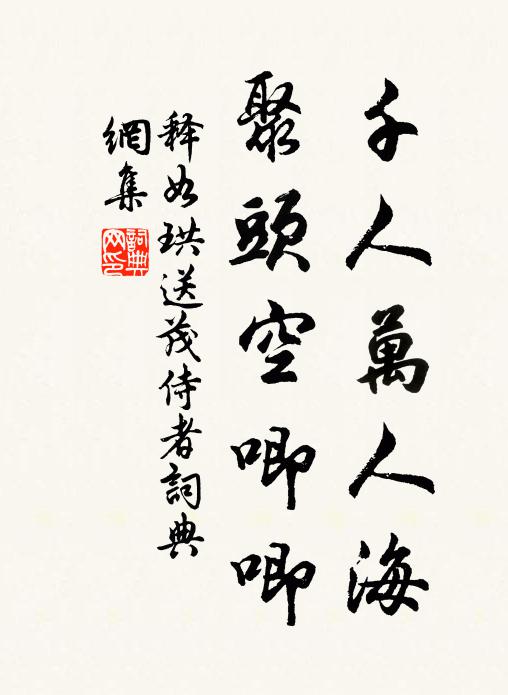 千人萬人海
聚頭空唧唧
释如珙送茂侍者詞典
網集
詞典网印